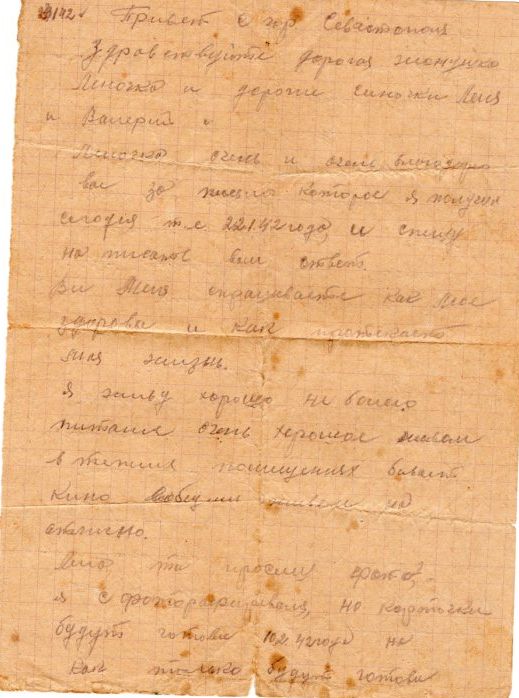 Привет с гор. Севастополя
Здравствуйте дорогая женушка
Леночка и дороги синочки Леня
и Валерий.
Леночка очень и очень благодарю
вас за письмо которое я получил
сегодня т.е 22.1.42 года и спешу
написать вам ответ.
Ви меня спрашиваете как мое
здоровя и как протекает
моя жизнь.
Я живу хорошо не болею
питание очень хорошое живем
в тепних помищениях бивает
кино живем на
отлично.
ти просиш фото
я сфотографировался, но карточки
будут готови 10.2.42 года но
как только будут готови